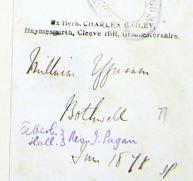 Ex Herb. CHARLES BAILEY,
Haymesgarth, Cleeve Hill, Gloucestershire.
Millium Effusum
Bothwell
Rev. J. Pagan
Jun 1878